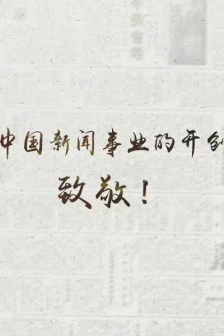 中国新闻事业的开创
致敬！